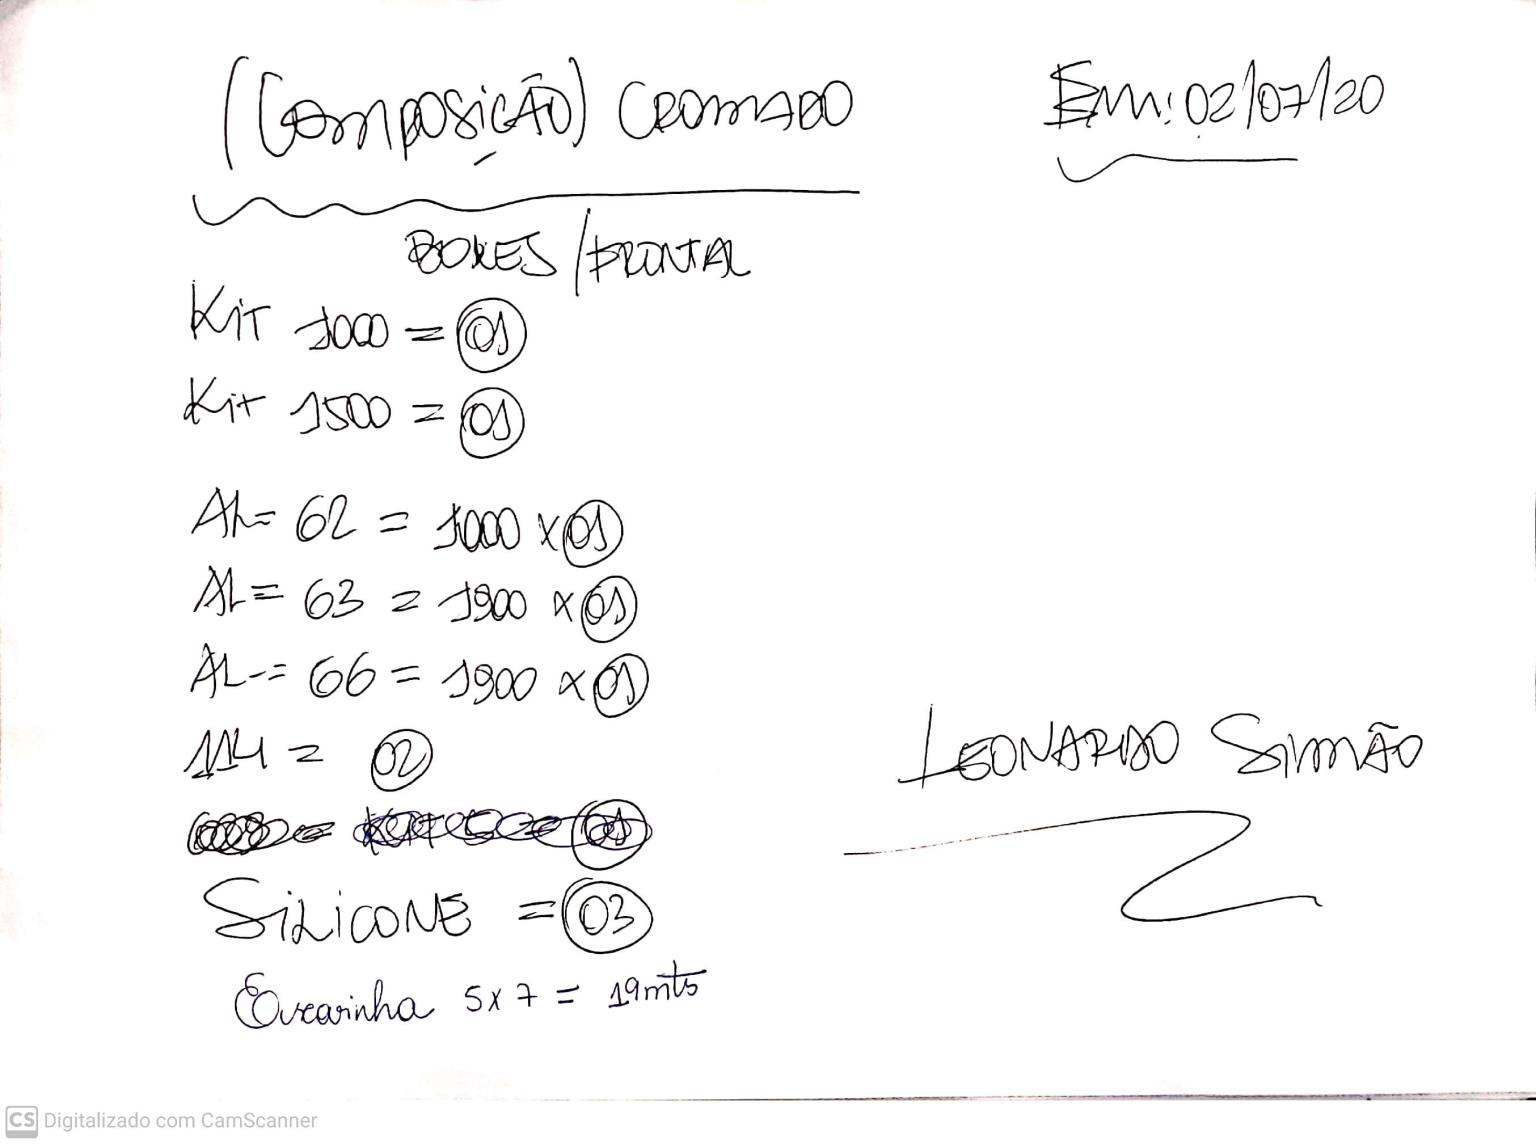 (Composição) CROMADO
Em: 02/07/20
BOXES / FRONTAL
Kit 1000 = 01
Kit 1500 = 01
AL= 62 = 1000 x 01
AL= 63 = 1900 x 01
AL-= 66 = 1900 x 01
114 = 02
SILICONE = 03
5x7 = 19mts
LEONARDO SIMÃO
CS Digitalizado com CamScanner